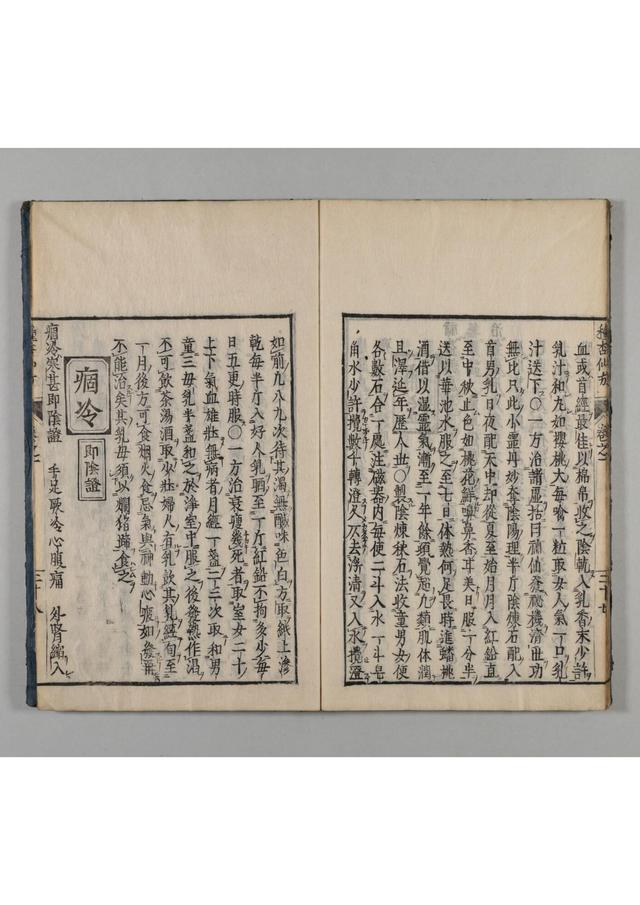 血或首經最佳以棉帛收之陰乾入乳香末少許
乳汁和丸如櫻桃大每噙一粒取女人氣一口乳
汁送下〇一方治諸虛指日神仙發秘機濟世功
無比只此小靈丹妙奪陰陽理半斤陰煉石配入
首男乳日夜配天中却從夏至始月月入紅鉛直
至中秋止色如桃花鮮嗅鼻香耳美日服一分半
送以華池水服之至七日体熱何足畏時進蟠桃
酒借以温靈氣漸至二年餘頭覺起九類肌体潤
且澤延年歷人世〇製陰煉秋石法收童男女便
各數石合一處注磁器內每使二斗入水一斗皂
角水少許攪數千轉澄久仄去濘清又入水攪澄
如前九八九次待其濁無醎味色白方取紙上滲
乾每半斤入好人乳晒至一斤紅鉛不拘多少每
日五更時服〇一方治衰痩幾死者取室女二十
上下氣血雄壯無病者月經一盞二三次取和男
童三毋乳半盞和之於淨室中服之後發熱作渴
不可飲茶湯酒取少壯婦人有乳飲其乳經旬至
一月後方可食烟火食忌氣與神動心疲如發再
不能治矣其乳毋須以爛猪蹄食之
痼冷
即陰證
痼冷寒甚即陰證 手足厥冷心腹痛 外腎縮入